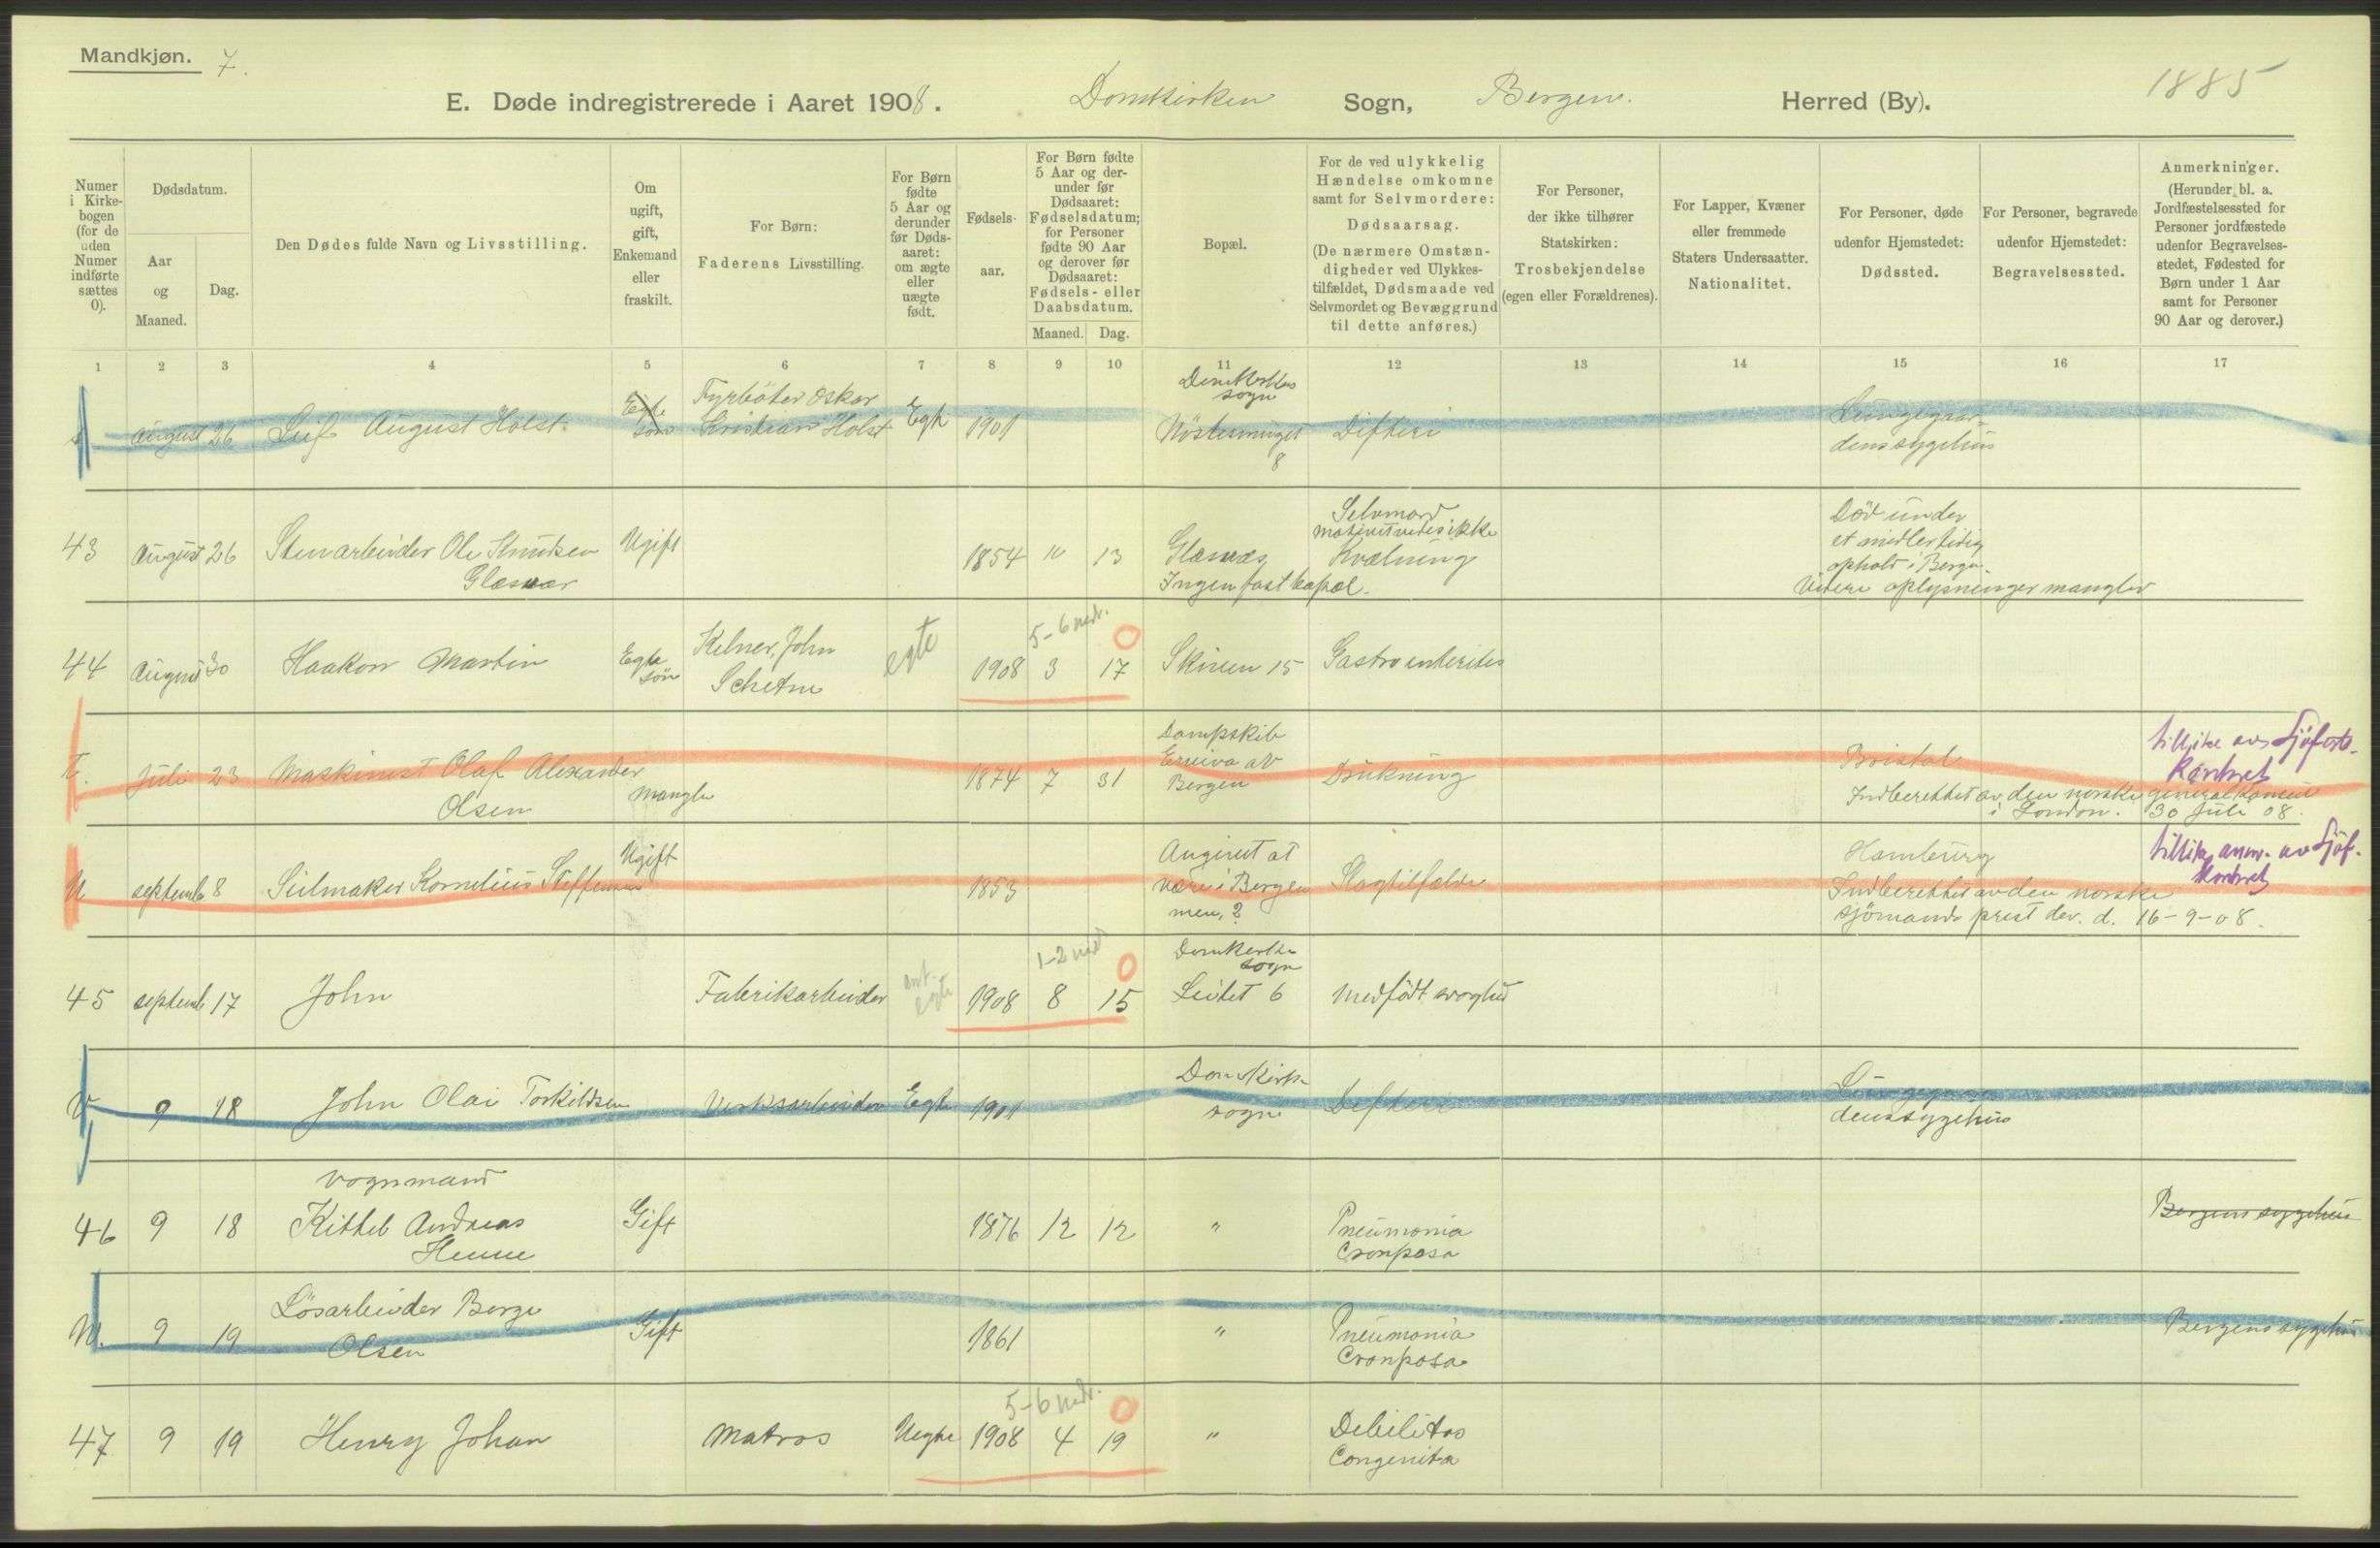 Mandkjøn. 7.
1885
E. Døde indregistrerede i Aaret 1908. Domkirken Sogn, Bergen. Herred (By).
Numer i Kirke-bogen (for de uden Numer indførte sættes 0).
Dødsdatum.
Aar og Maaned.
Dag.
Den Dødes fulde Navn og Livsstilling.
Om ugift, gift, Enkemand eller fraskilt.
For Børn: Faderens Livsstilling.
For Børn fødte 5 Aar og derunder før Døds-aaret: om ægte eller uægte født.
Fødsels-aar.
For Børn fødte 5 Aar og der-under før Dødsaaret: Fødselsdatum; for Personer fødte 90 Aar og derover før Dødsaaret: Fødsels- eller Daabsdatum.
Maaned. Dag.
Bopæl.
For de ved ulykkelig Hændelse omkomne samt for Selvmordere: Dødsaarsag. (De nærmere Omstæn-digheder ved Ulykkes-tilfældet, Dødsmaade ved Selvmordet og Bevæggrund til dette anføres.)
For Personer, der ikke tilhører Statskirken: Trosbekjendelse (egen eller Forældrenes).
For Lapper, Kvæner eller fremmede Staters Undersaatter. Nationalitet.
For Personer, døde udenfor Hjemstedet: Dødssted.
For Personer, begravede udenfor Hjemstedet: Begravelsessted.
Anmerkninger. (Herunder bl. a. Jordfæstelsessted for Personer jordfæstede udenfor Begravelses-stedet, Fødested for Børn under 1 Aar samt for Personer 90 Aar og derover.)
1 2 3 4 5 6 7 8 9 10 11 12 13 14 15 16 17
August 26 Leif August Holst Egte søn Fyrbøter Oskar Kristian Holst Egte 1901 Domkirkens sogn Nøstesmuget 8 Difteri Lungegaar-dens sygehus
43 August 26 Stenarbeider Ole Knutsen Glesnær Ugift 1854 10 13 Glesnæs Ingen fast bopæl. Selvmord motivet vedes ikke Kvælning Død under et midlertidig ophold i Bergen. Videre oplysninger mangler
44 August 30 Haakon Martin Egte søn Kelner, John egte 5-6 mdr. 0 1908 3 17 Skiven 15 Gastroenterites
T. Juli 23 Maskinist Olaf Alexander Olsen Mangler 1874 7 31 Dampskib av Bergen Drukning Bristol Indberettet av den norske general konsul i London. 30 Juli 08. tillike
U September 8 Seilmaker Kornelius Steffensen Ugift 1853 Angivet at være i Bergen men, ? Slagtilfælde Hamburg Indberettet av den norske sjømands prest dev. d. 16-9-08. tillike anm. av Sjøf. kontoret
45 septemb 17 John Fabrikarbeider ant. egte 1-2 mdr 0 1908 8 15 Domkirke sogn Leitet 6 Medfødt svaghed
V 9 18 John Olai Torkildsen Verksarbeider Egte 1901 Domkirke sogn Difteri Lungegaar denssygehus
46 9 18 vognmand Kittel Andreas Henne Gift 1876 12 12 " Pneumonia Crouposa Bergens sygehus
W. 9 19 Løsarbeider Berge Olsen Gift 1861 " Pneumonia Crouposa Bergens sygehus
47 9 19 Henry Johan Matros Uegte 5-6 mdr. 0 1908 4 19 " Debilitas Congenita